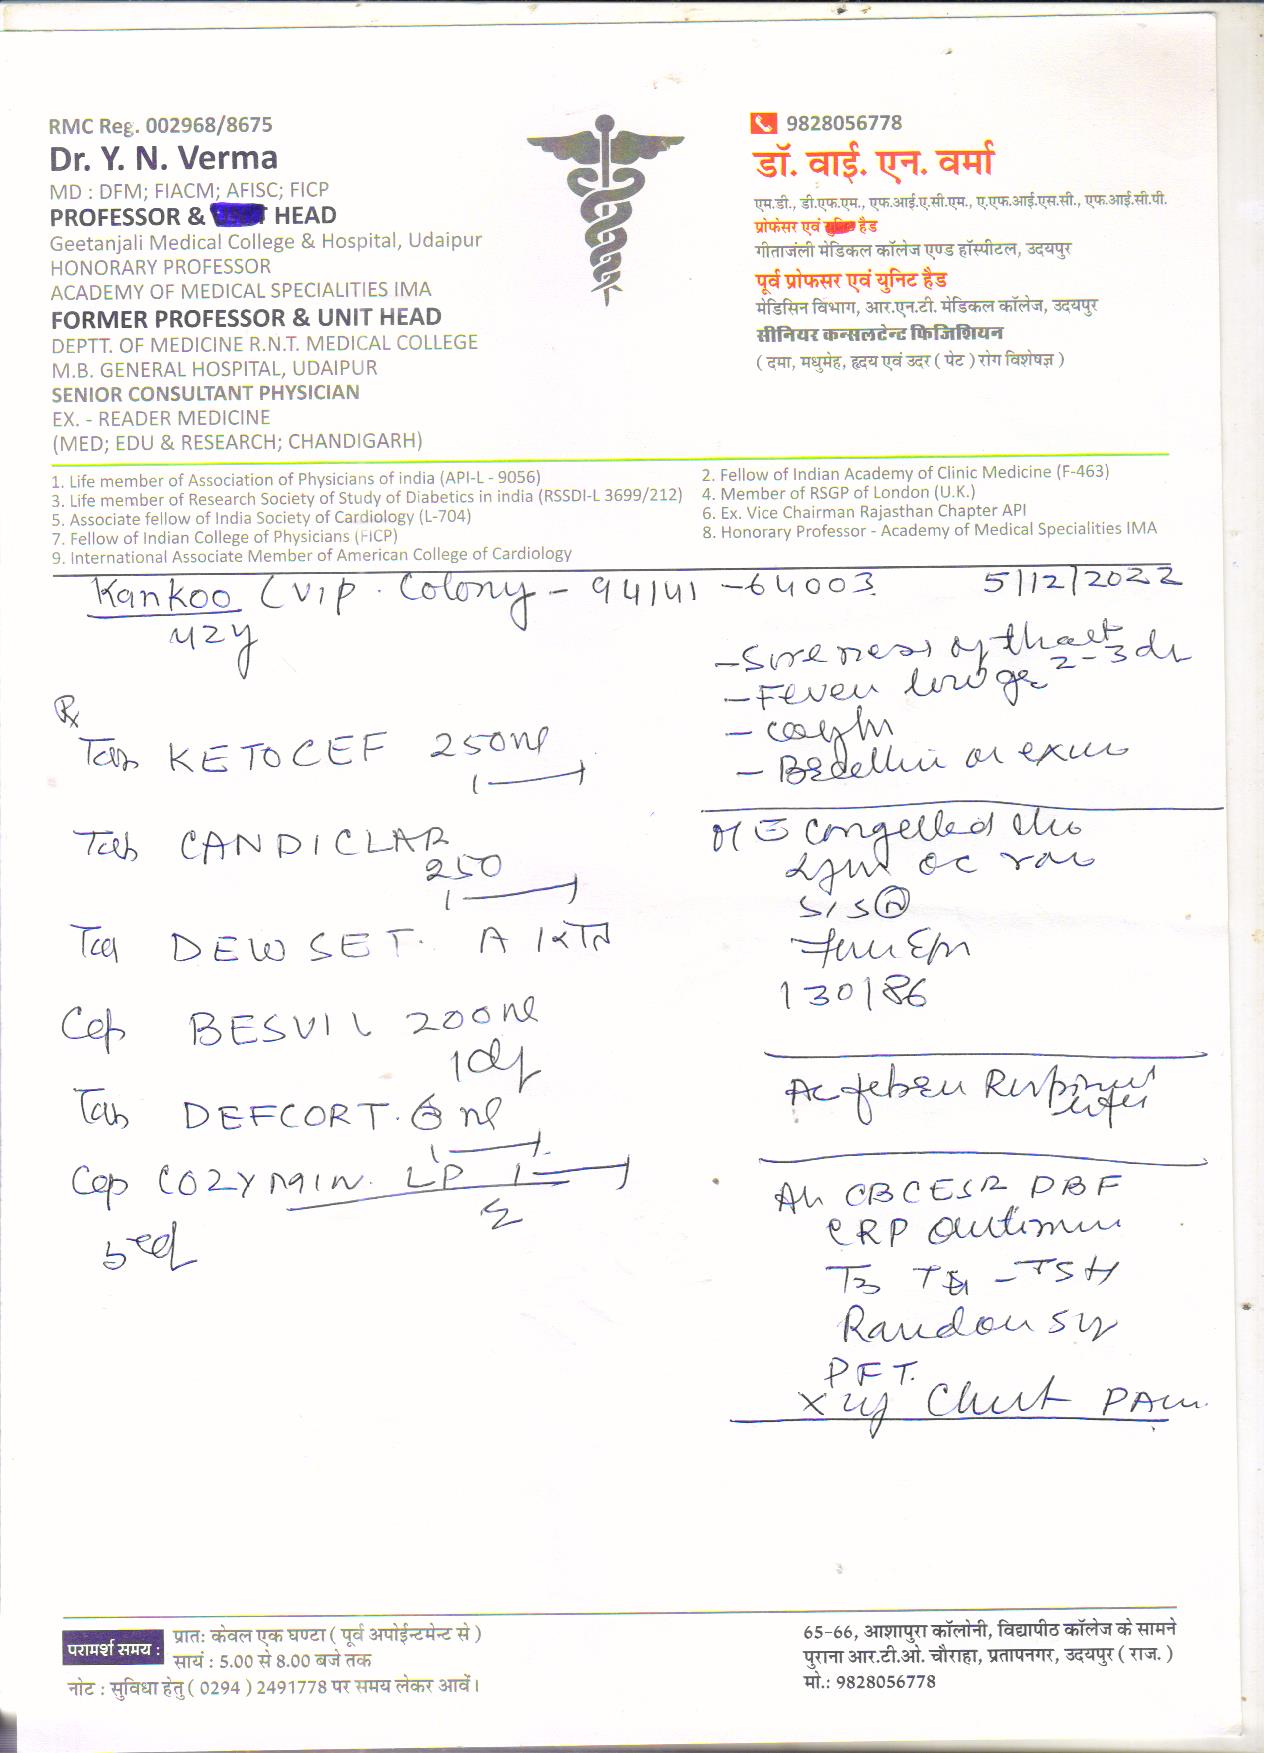 RMC Reg. 002968/8675
Dr. Y. N. Verma
MD : DFM; FIACM; AFISC; FICP
PROFESSOR & HEAD
Geetanjali Medical College & Hospital, Udaipur
HONORARY PROFESSOR
ACADEMY OF MEDICAL SPECIALITIES IMA
FORMER PROFESSOR & UNIT HEAD
DEPTT. OF MEDICINE R.N.T. MEDICAL COLLEGE
M.B. GENERAL HOSPITAL, UDAIPUR
SENIOR CONSULTANT PHYSICIAN
EX. - READER MEDICINE
(MED; EDU & RESEARCH; CHANDIGARH)
9828056778
डॉ. वाई. एन. वर्मा
एम.डी., डी.एफ.एम., एफ.आई.ए.सी.एम., ए.एफ.आई.एस.सी., एफ.आई.सी.पी.
प्रोफेसर एवं हैड
गीताजंली मेडिकल कॉलेज एण्ड हॉस्पीटल, उदयपुर
पूर्व प्रोफसर एवं युनिट हैड
मेडिसिन विभाग, आर.एन.टी. मेडिकल कॉलेज, उदयपुर
सीनियर कन्सलटेन्ट फिजिशियन
( दमा, मधुमेह, हृदय एवं उदर ( पेट ) रोग विशेषज्ञ )
1. Life member of Association of Physicians of india (API-L - 9056)
2. Fellow of Indian Academy of Clinic Medicine (F-463)
3. Life member of Research Society of Study of Diabetics in india (RSSDI-L 3699/212)
4. Member of RSGP of London (U.K.)
5. Associate fellow of India Society of Cardiology (L-704)
6. Ex. Vice Chairman Rajasthan Chapter API
7. Fellow of Indian College of Physicians (FICP)
8. Honorary Professor - Academy of Medical Specialities IMA
9. International Associate Member of American College of Cardiology
Kankoo (VIP. Colony - 94141-64003 5/12/2022
42y
℞
Tab KETOCEF 250
Tab CANDICLAR
250
DEWSET. A
Cap BESVIL 200
Tab DEFCORT. 6
Cap COZYMIN. LP
- Soreness of
2-3
- Fever
- cough
-
congested
S1S2 N
130/86
CBC ESR PBF
CRP
T3 T4 - TSH
Random
PFT.
Xray Chest PA
परामर्श समय :
प्रातः केवल एक घण्टा ( पूर्व अपोईन्टमेन्ट से )
सायं : 5.00 से 8.00 बजे तक
नोट : सुविधा हेतु ( 0294 ) 2491778 पर समय लेकर आवें।
65-66, आशापुरा कॉलोनी, विद्यापीठ कॉलेज के सामने
पुराना आर.टी.ओ. चौराहा, प्रतापनगर, उदयपुर ( राज. )
मो.: 9828056778